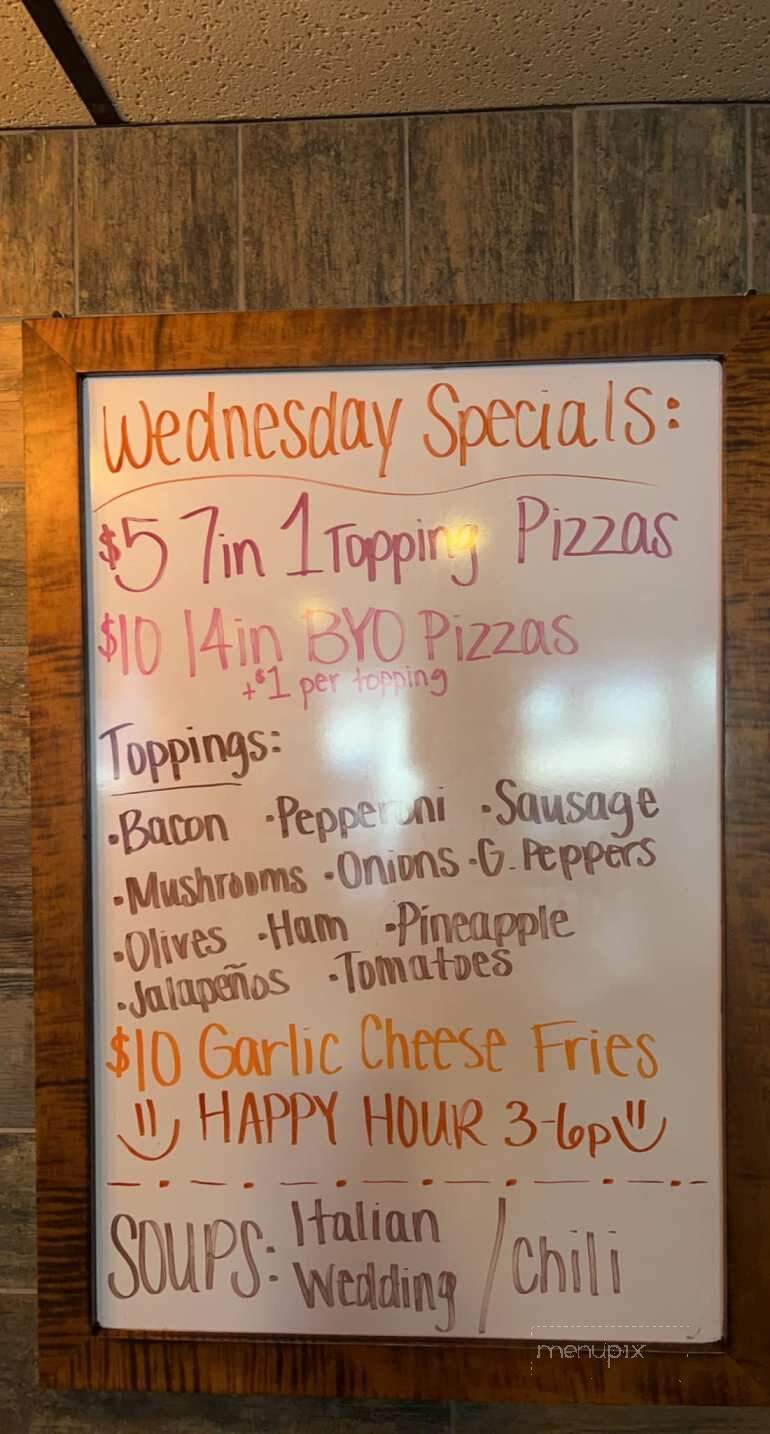 Wednesday Specials:
$5 7in 1 Topping Pizzas
$10 14in BYO Pizzas
+$1 per topping
Toppings:
·Bacon ·Pepperoni ·Sausage
·Mushrooms ·Onions ·G. Peppers
·Olives ·Ham ·Pineapple
·Jalapeños ·Tomatoes
$10 Garlic Cheese Fries
HAPPY HOUR 3-6p
SOUPS: Italian Wedding / Chili
menupix